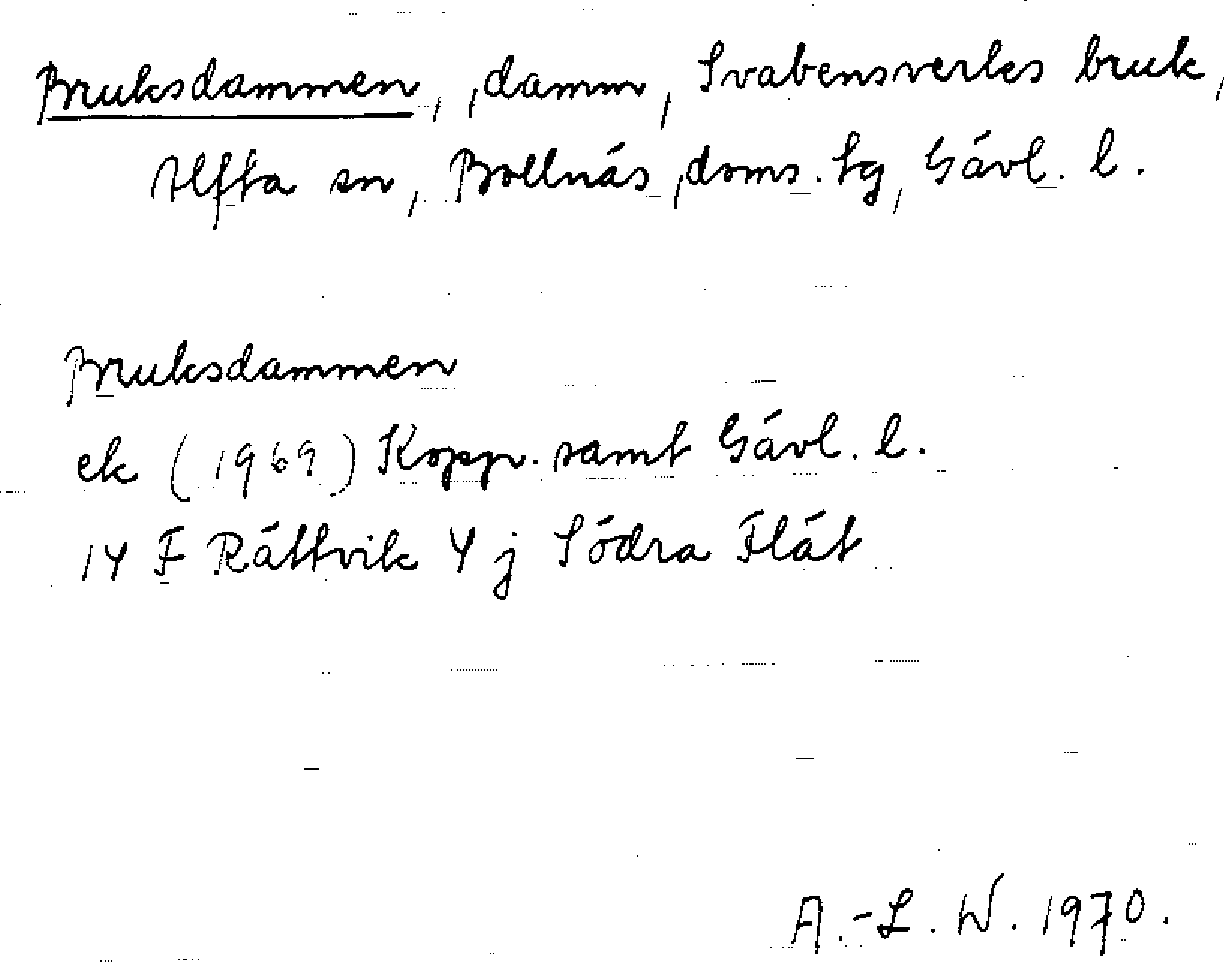 Bruksdammen, damm, Svabensverks bruk,
Alfta sn, Bollnäs doms. tg, Gävl. l.
Bruksdammen
ek (1969) Kopp. samt Gävl. l.
14 F Rättvik 4 j Södra Flät
A.-L. W. 1970.